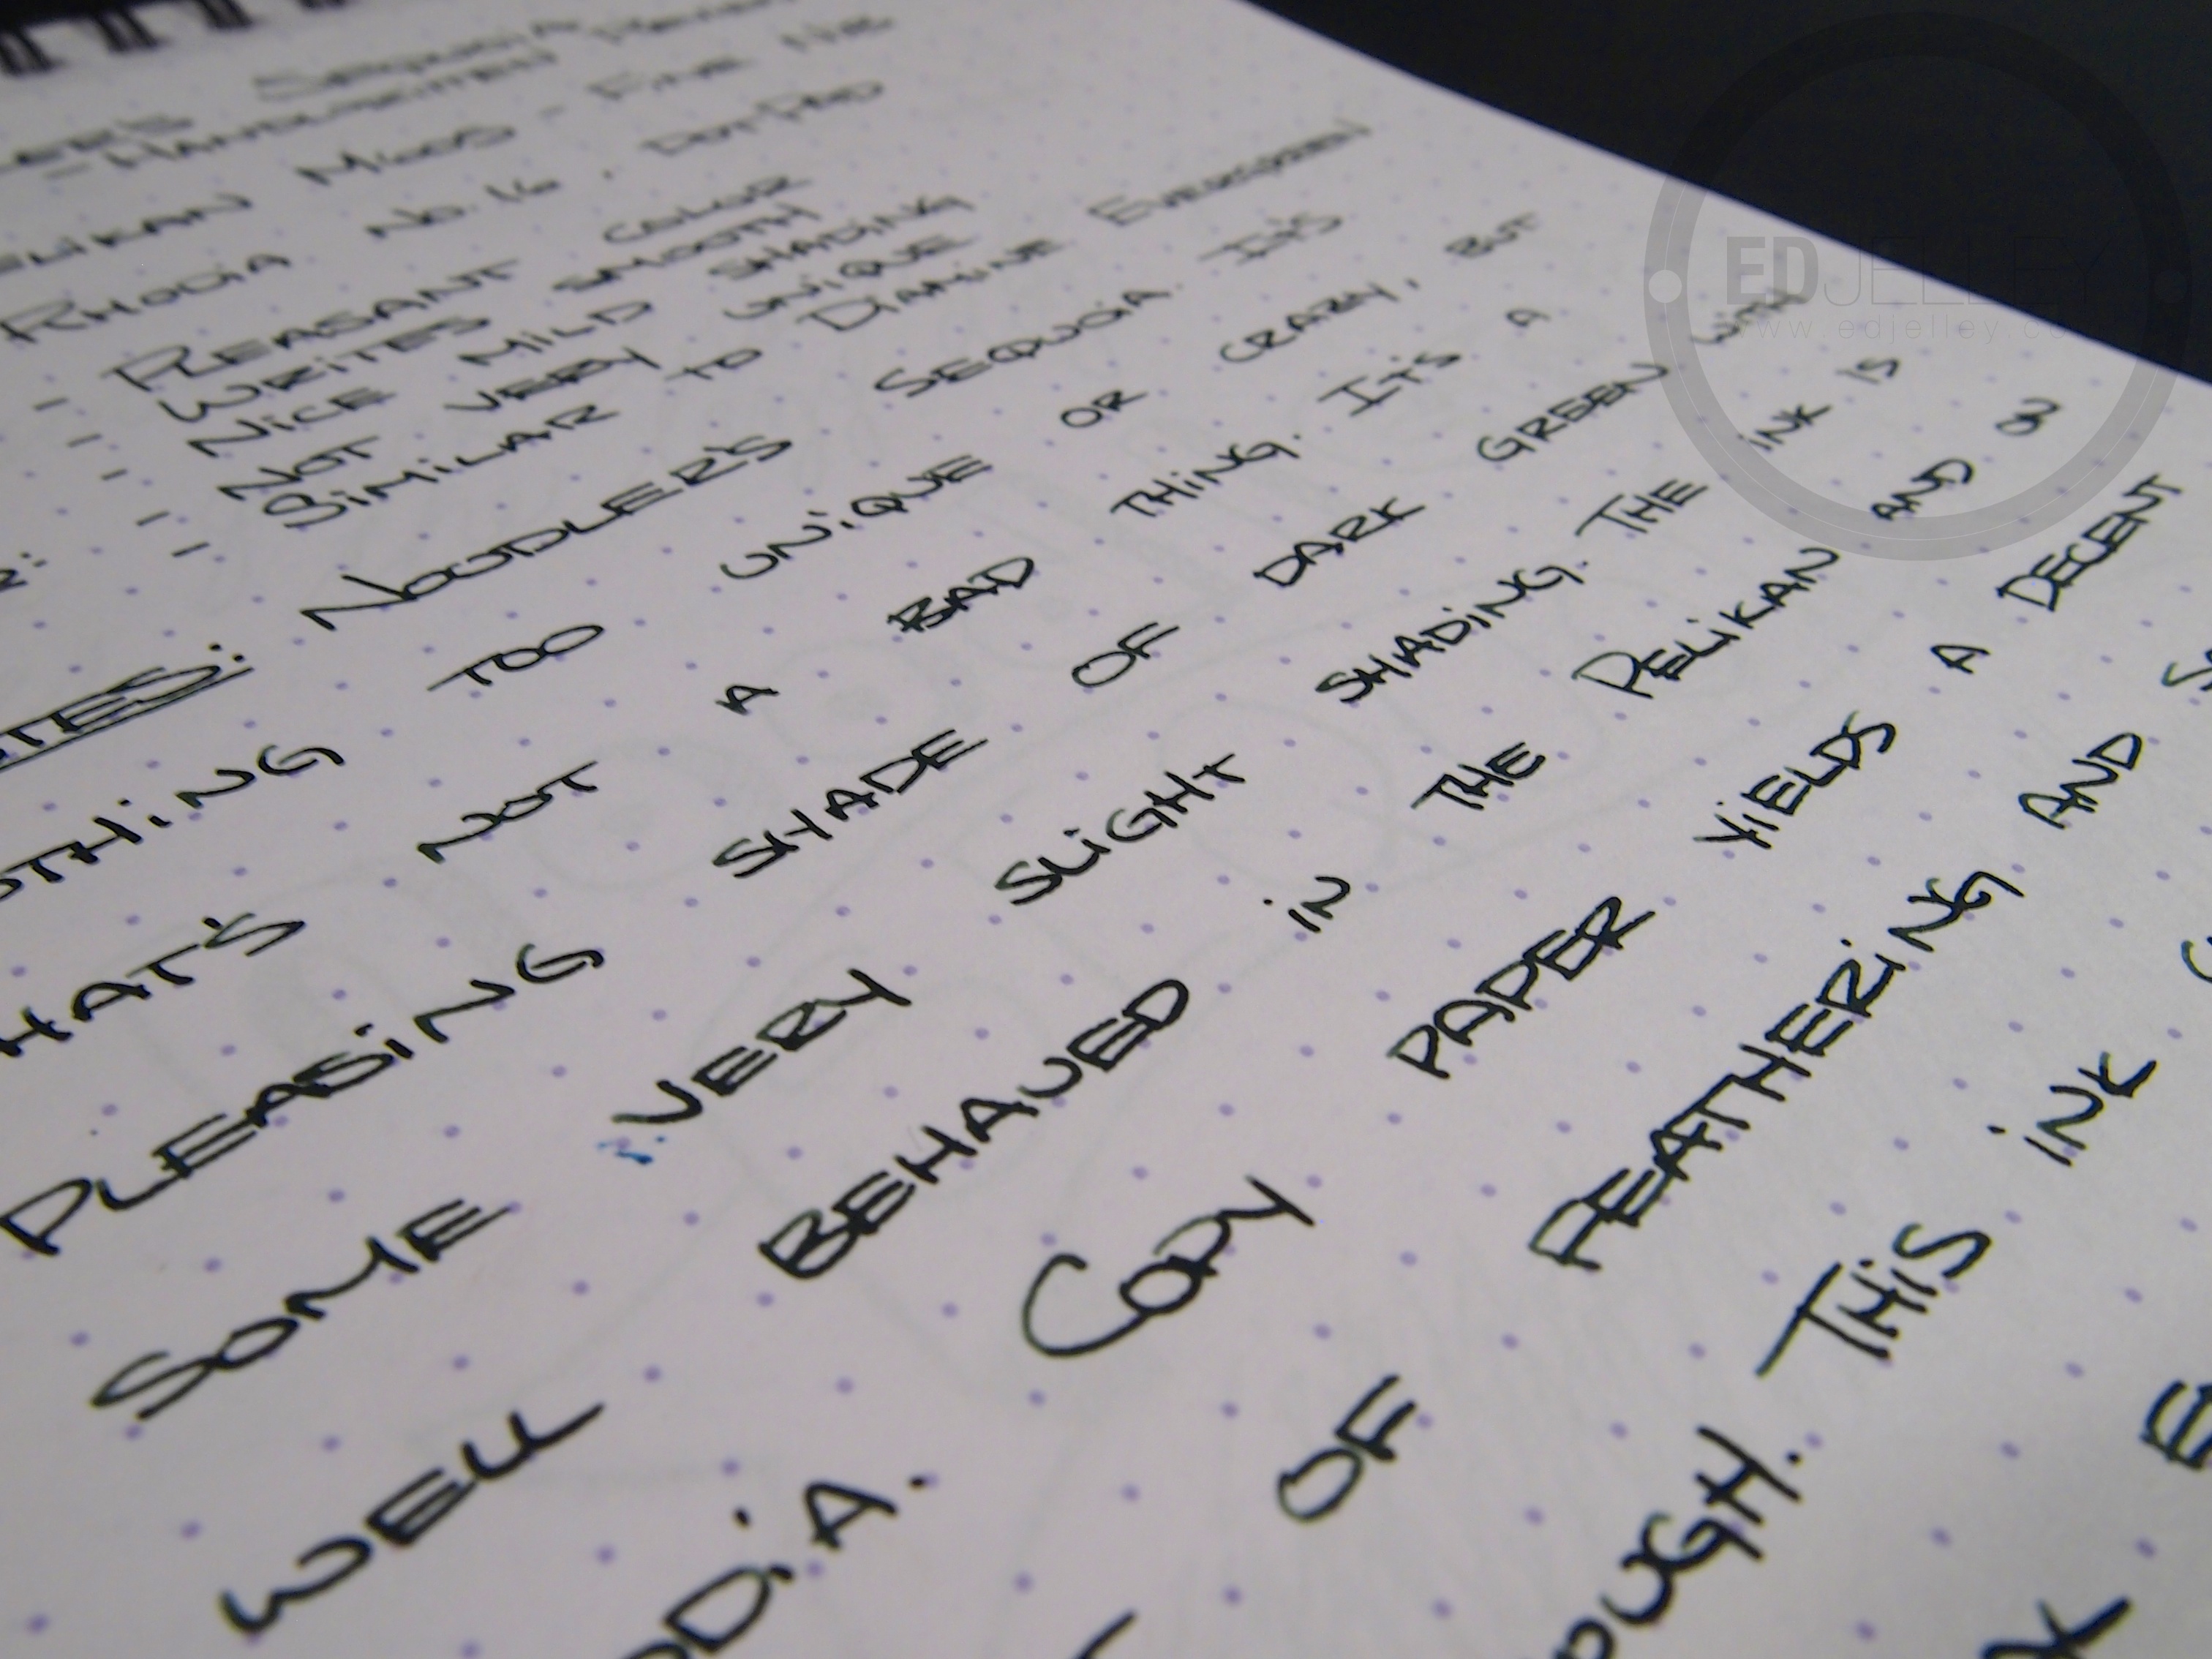 Sequoia
- Handwritten
Pelikan M1005 - Fine Nib
Rhodia No. 16, Dot Pad
- Pleasant color
- Writes smooth
- Nice mild shading
- Not very unique
- Similar to Diamine Evergreen
Noodler's Sequoia. It's
too unique or crazy, but
not a bad thing. It's a
pleasing shade of dark green with
some very slight shading. The ink is
well behaved in the Pelikan and on
Copy paper yields a decent
of feathering and
This ink
EDJELLEY
www.edjelley.co